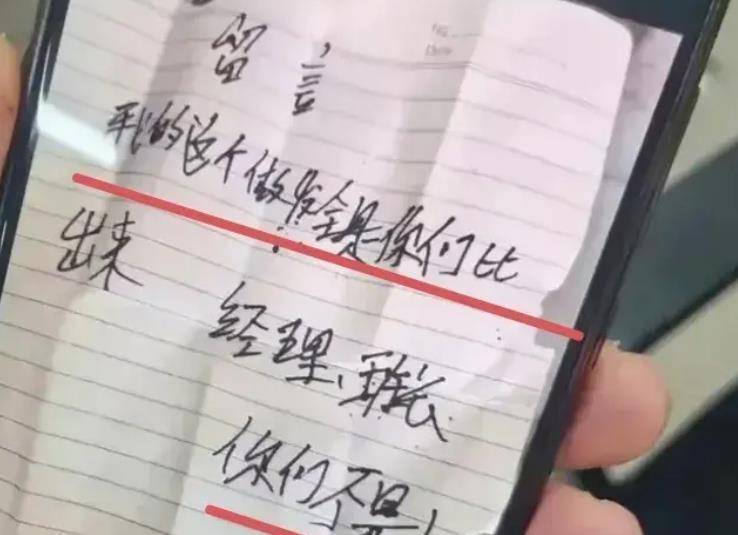 留言
我的这个做发全是你们比
出来
经理、班长
你们不是